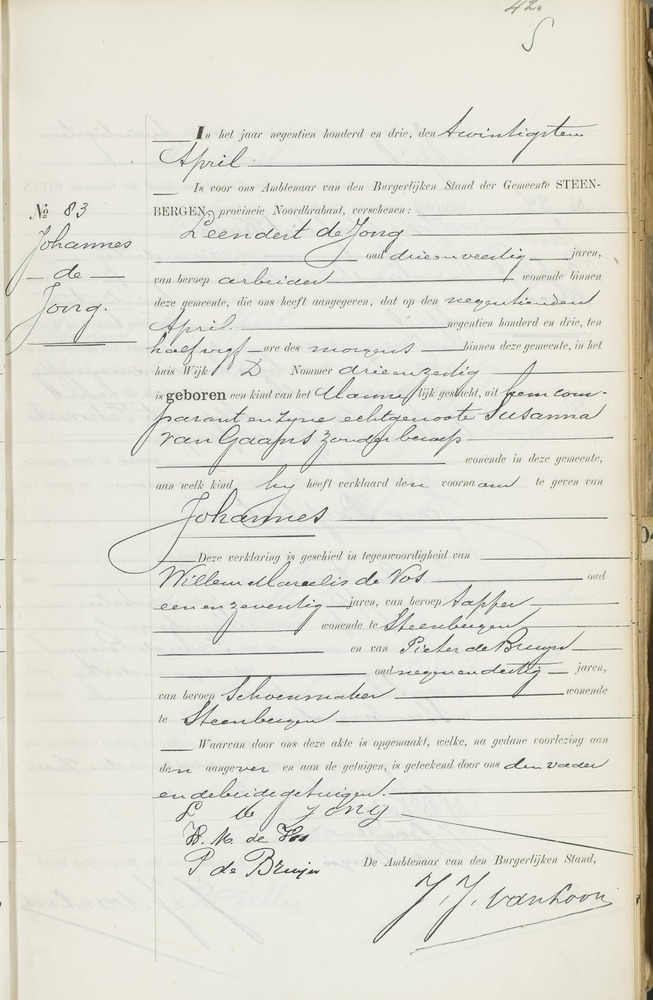 42
5
In het jaar negentien honderd en drie, den twintigsten
April
Is voor ons Ambtenaar van den Burgerlijken Stand der Gemeente STEEN-
BERGEN, provincie Noordbrabant, verschenen:
No 83
Johannes
de
Jong.
Leendert de Jong
oud drieenveertig jaren,
van beroep arbeider wonende binnen
deze gemeente, die ons heeft aangegeven, dat op den negentienden
April negentien honderd en drie, ten
half vijf ure des morgens binnen deze gemeente, in het
huis Wijk D Nommer drieenzestig
is geboren een kind van het Manne lijk geslacht, uit hem com-
parant en zyne echtgenoote Susanna
van Gaans zonder beroep
wonende in deze gemeente,
aan welk kind hy heeft verklaard den voornaam te geven van
Johannes
Deze verklaring is geschied in tegenwoordigheid van
Willem Marcelis de Vos oud
een en zeventig jaren, van beroep tapper
wonende te Steenbergen
en van Pieter de Bruyn
oud negenendertig jaren,
van beroep Schoenmaker wonende
te Steenbergen
Waarvan door ons deze akte is opgemaakt, welke, na gedane voorlezing aan
den aangever en aan de getuigen, is geteekend door ons den vader
en de beide getuigen.
L de Jong
W. M. de Vos
P de Bruijn
De Ambtenaar van den Burgerlijken Stand,
J. J. van Loon